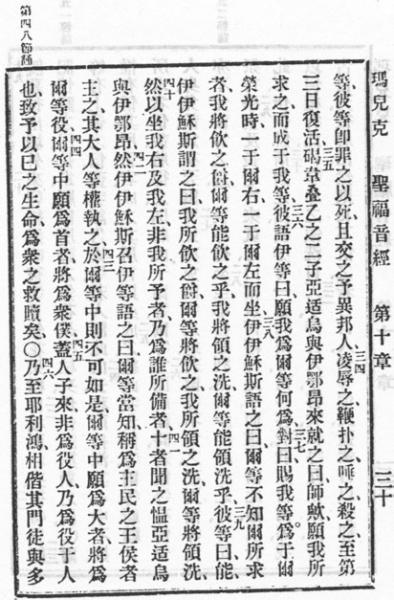 瑪兒克 聖福音經 第十章 三十
等、彼等卽罪之以死、且交之予異邦人、三四凌辱之、鞭扑之、唾之、殺之、至第
三日復活、三五碣韋疊乙之二子亞适烏與伊鄂昂來就之曰、師歟、願我所
求之而成于我等、三六彼語伊等曰、願我爲爾等何爲、三七對曰、賜我等、爲于爾
榮光時、一于爾右、一于爾左而坐、三八伊伊穌斯語之曰、爾等不知爾所求
者、我將飮之爵、爾等能飮之乎、我將領之洗、爾等能領洗乎、三九彼等曰、能、
伊伊穌斯謂之曰、我所飮之爵、爾等將飮之、我所領之洗、爾等將領洗、
四十然以坐我右及我左、非我所予者、乃爲誰所備者、四一十者聞之、慍亞适烏
與伊鄂昂、四二然伊伊穌斯召伊等語之曰、爾等當知稱爲主民之王侯者
主之、其大人等權執之、四三於爾等中則不可如是、爾等中願爲大者、將爲
爾等役、四四爾等中願爲首者、將爲衆僕、四五蓋人子來、非爲役人、乃爲役于人
也、致予以己之生命、爲衆之救贖矣、〇四六乃至耶利鴻、相偕其門徒與多
第四八節誦